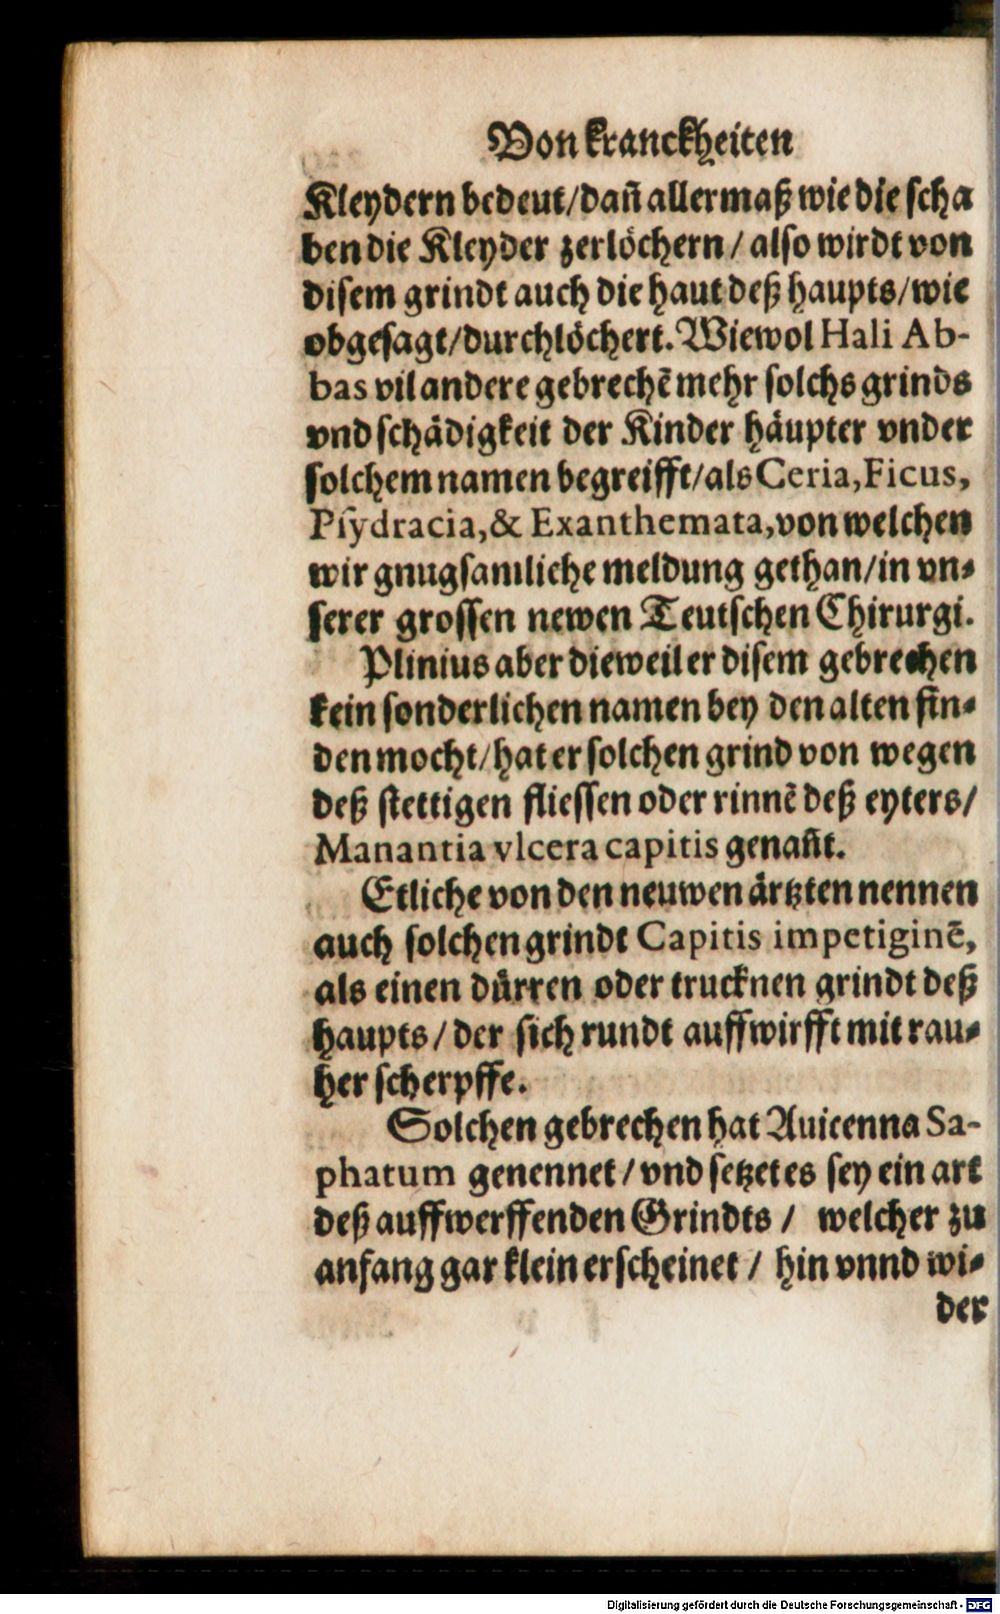 Von kranckheiten
Kleydern bedeut/dañ allermaß wie die scha
ben die Kleyder zerlöchern / also wirdt von
disem grindt auch die haut deß haupts/wie
obgesagt/durchlöchert. Wiewol Hali Ab-
bas vil andere gebrechē mehr solchs grinds
vnd schädigkeit der Kinder häupter vnder
solchem namen begreifft/als Ceria, Ficus,
Psydracia, & Exanthemata, von welchen
wir gnugsamliche meldung gethan/in vn-
serer grossen newen Teutschen Chirurgi.
Plinius aber dieweil er disem gebrechen
kein sonderlichen namen bey den alten fin-
den mocht/hat er solchen grind von wegen
deß stettigen fliessen oder rinnē deß eyters/
Manantia vlcera capitis genañt.
Etliche von den neuwen ärtzten nennen
auch solchen grindt Capitis impetiginē,
als einen dürren oder trucknen grindt deß
haupts / der sich rundt auffwirfft mit rau-
her scherpffe.
Solchen gebrechen hat Auicenna Sa-
phatum genennet / vnd setzet es sey ein art
deß auffwerffenden Grindts / welcher zu
anfang gar klein erscheinet / hin vnnd wi-
der
Digitalisierung gefördert durch die Deutsche Forschungsgemeinschaft - DFG